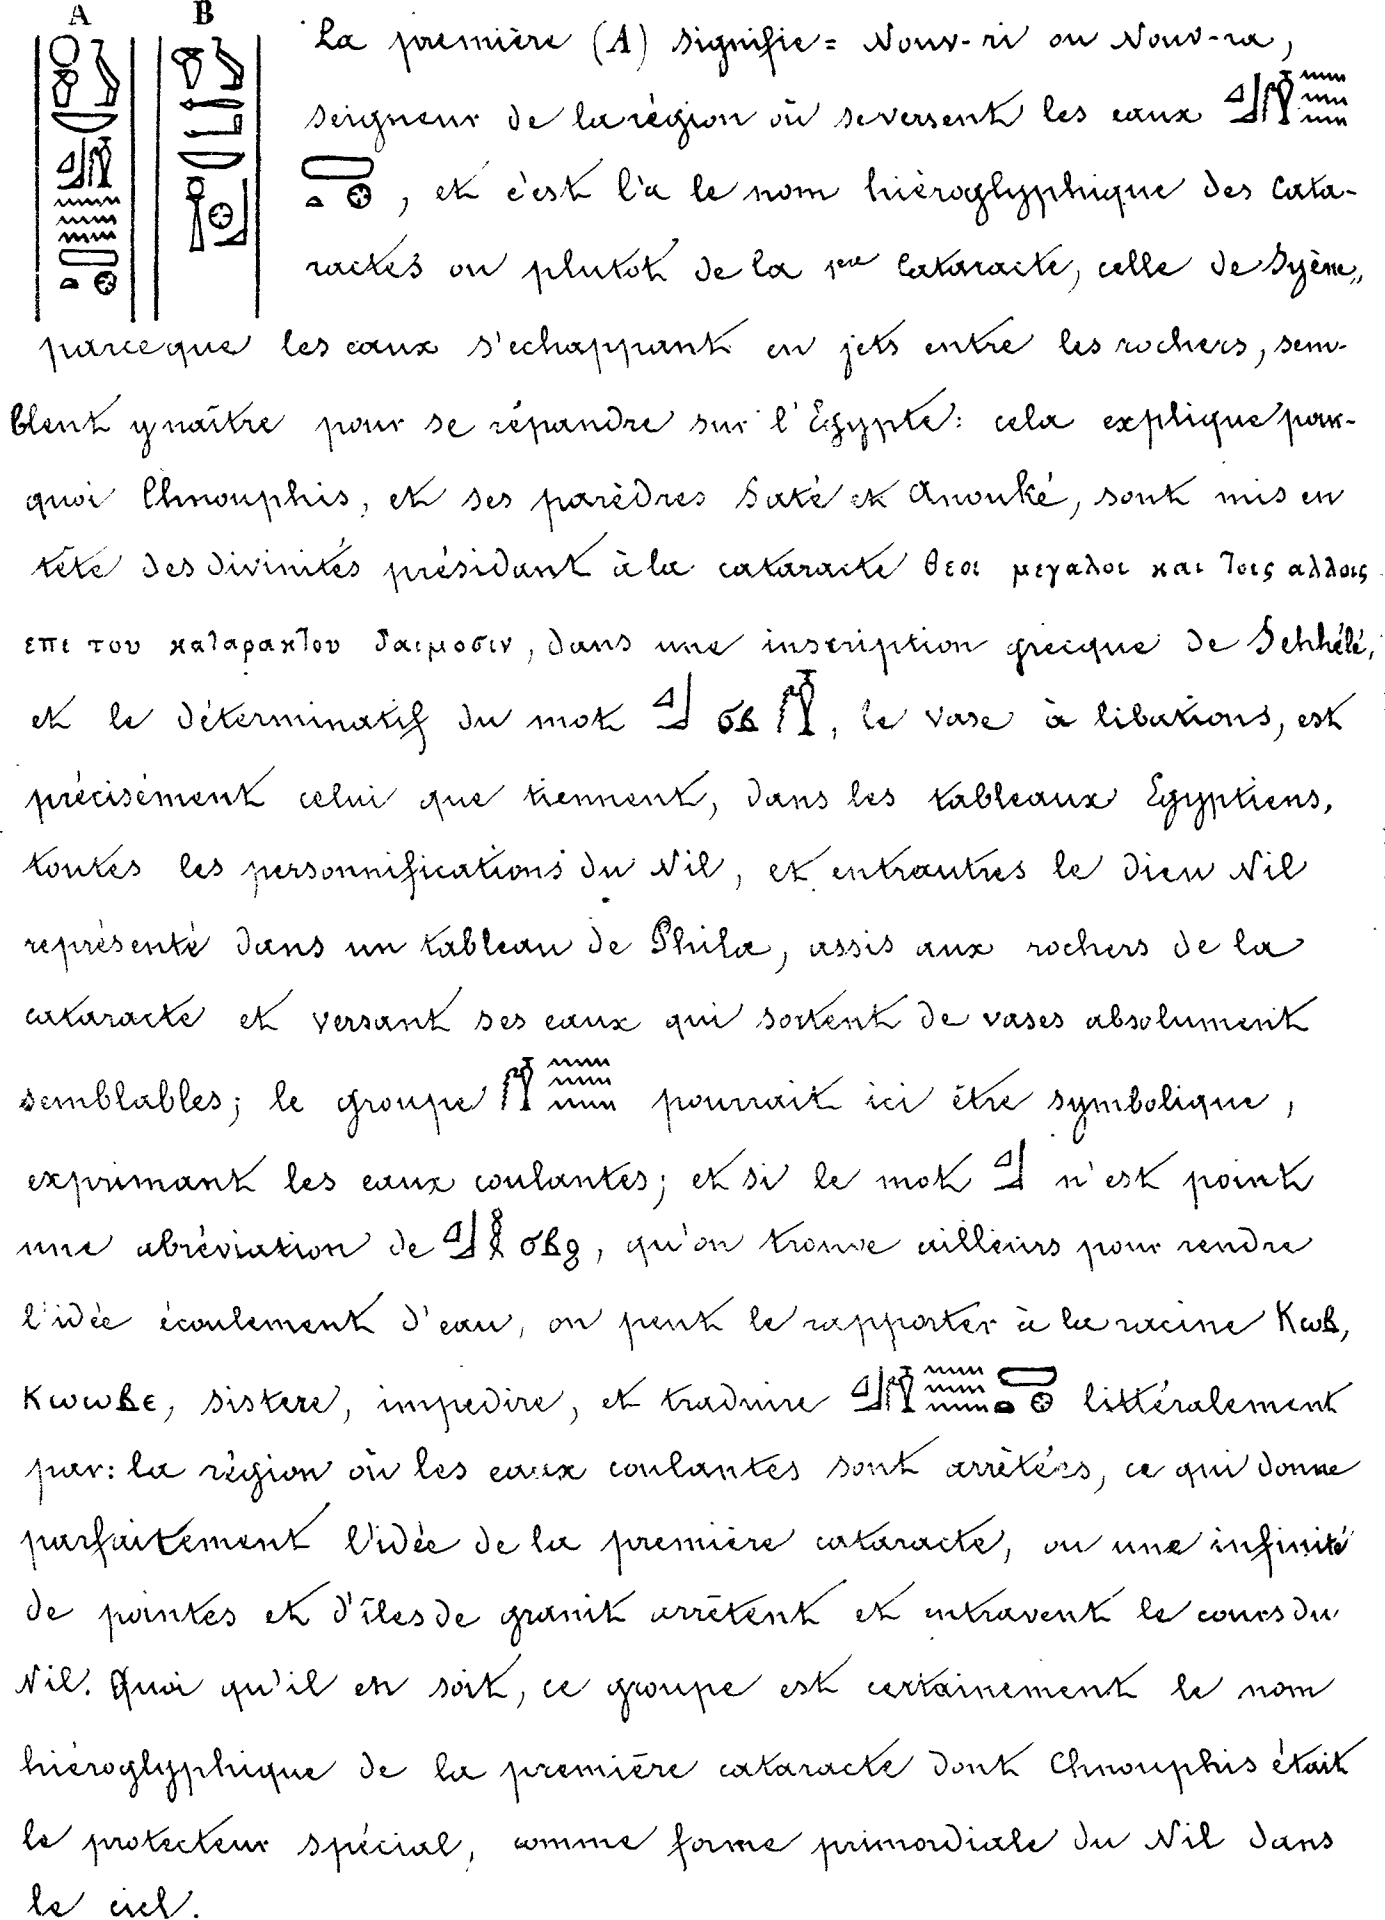 A B
La première (A) signifie = Nouv-ri ou Nouv-ra,
seigneur de la région où se versent les eaux
, et c'est là le nom hiéroglyphique des Cata-
ractes ou plutôt de la 1ere Cataracte, celle de Syène,
parceque les eaux s'echappant en jets entre les rochers, sem-
blent y naître pour se répandre sur l'Égypte: cela explique pour-
quoi Chnouphis, et ses parèdres Saté et Anouké, sont mis en
tête des divinités présidant à la cataracte θεοι μεγαλοι και τοις αλλοις
επι του καταρακτου δαιμοσιν, dans une inscription grecque de Sehhélé,
et le déterminatif du mot σⲃ , le vase à libations, est
précisément celui que tiennent, dans les tableaux Egyptiens,
toutes les personnifications du Nil, et entrautres le dieu Nil
représenté dans un tableau de Phila, assis aux rochers de la
cataracte et versant ses eaux qui sortent de vases absolument
semblables; le groupe pourrait ici être symbolique,
exprimant les eaux coulantes; et si le mot n'est point
une abréviation de σⲃϩ, qu'on trouve ailleurs pour rendre
l'idée écoulement d'eau, on peut le rapporter à la racine Ⲕⲱⲃ,
Ⲕⲱⲱⲃⲉ, sistere, impedire, et traduire littéralement
par: la région où les eaux coulantes sont arrêtées, ce qui donne
parfaitement l'idée de la première cataracte, ou une infinité
de pointes et d'îles de granit arrêtent et entravent le cours du
Nil. Quoi qu'il en soit, ce groupe est certainement le nom
hiéroglyphique de la première cataracte dont Chnouphis était
le protecteur spécial, comme forme primordiale du Nil dans
le ciel.